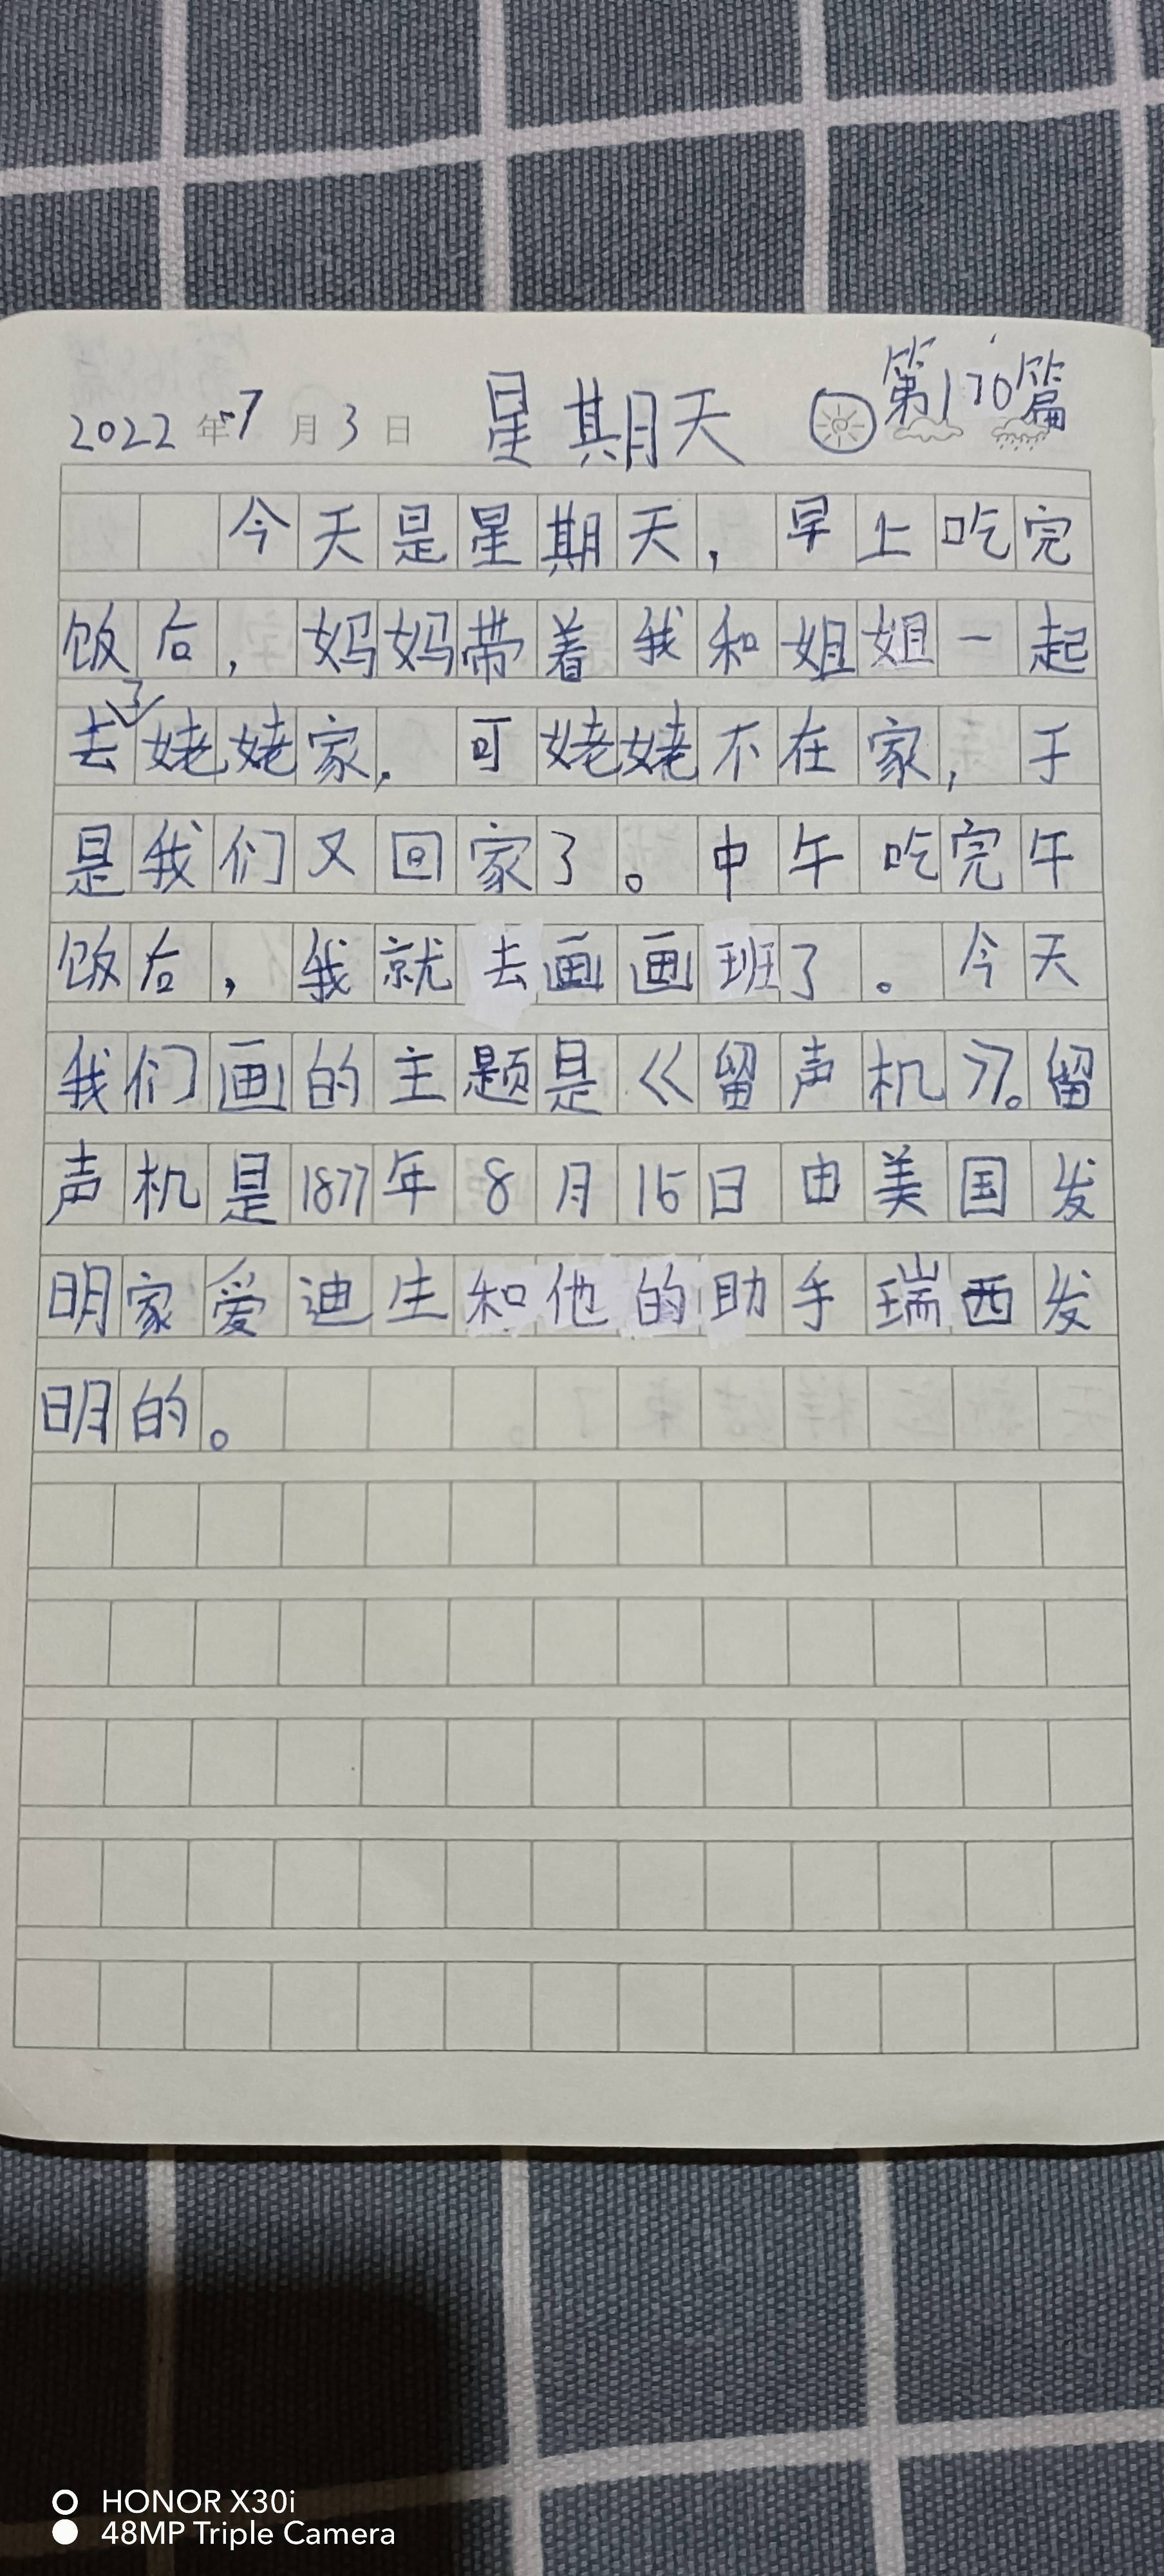 2022年7月3日 星期天 第170篇
今天是星期天，早上吃完
饭后，妈妈带着我和姐姐一起
去了姥姥家，可姥姥不在家，于
是我们又回家了。中午吃完午
饭后，我就去画画班了。今天
我们画的主题是《留声机》。留
声机是1877年8月15日由美国发
明家爱迪生和他的助手瑞西发
明的。
HONOR X30i
48MP Triple Camera